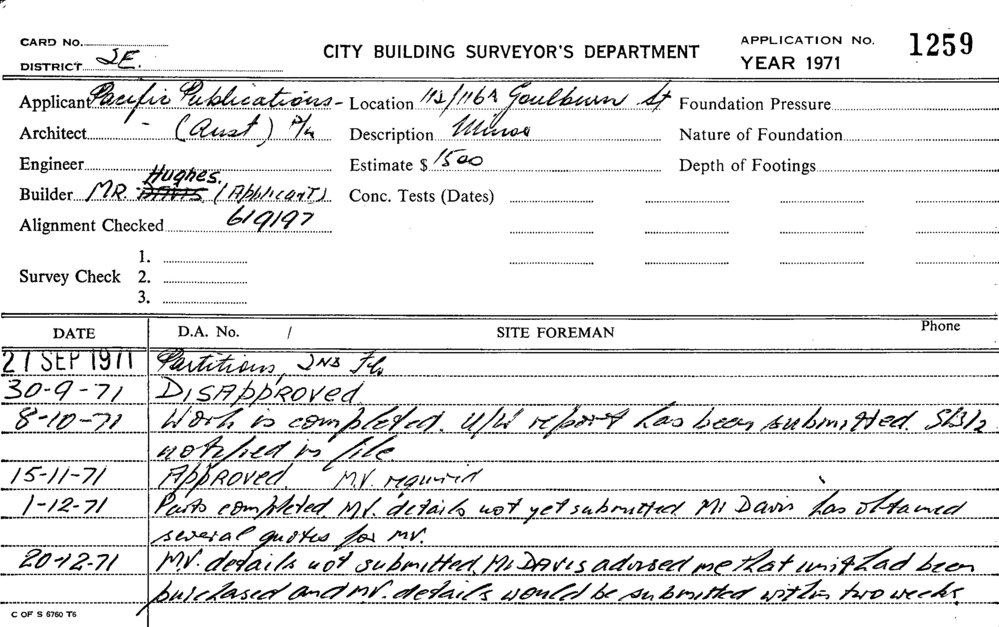 CARD No.
DISTRICT 2E.
CITY BUILDING SURVEYOR'S DEPARTMENT
APPLICATION No. 1259
YEAR 1971
Applicant Pacific Publications - Location 112/116A Goulburn St Foundation Pressure
Architect - (Aust) P/L Description Minor Nature of Foundation
Engineer Estimate $ 1500 Depth of Footings
Hughes.
Builder MR. DAVIS (Applicant) Conc. Tests (Dates)
Alignment Checked 619197
1.
Survey Check 2.
3.
DATE D.A. No. / SITE FOREMAN Phone
27 SEP 1971 Partitions, 2ND Flr
30-9-71 DISAPPROVED
8-10-71 Work is completed. U/W report has been submitted
notified in file
15-11-71 Approved. M.V. required
1-12-71 Parts completed. M.V. details not yet submitted Mr Davis has obtained
several quotes for MV.
20-12-71 MV. details not submitted. Mr DAVIS advised me that unit had been
purchased and MV. details would be submitted within two weeks
C OF S 6760 T6